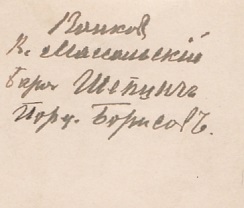 Волков
К. Массальскій
Барон Шепингъ
Пору. Борисовъ.